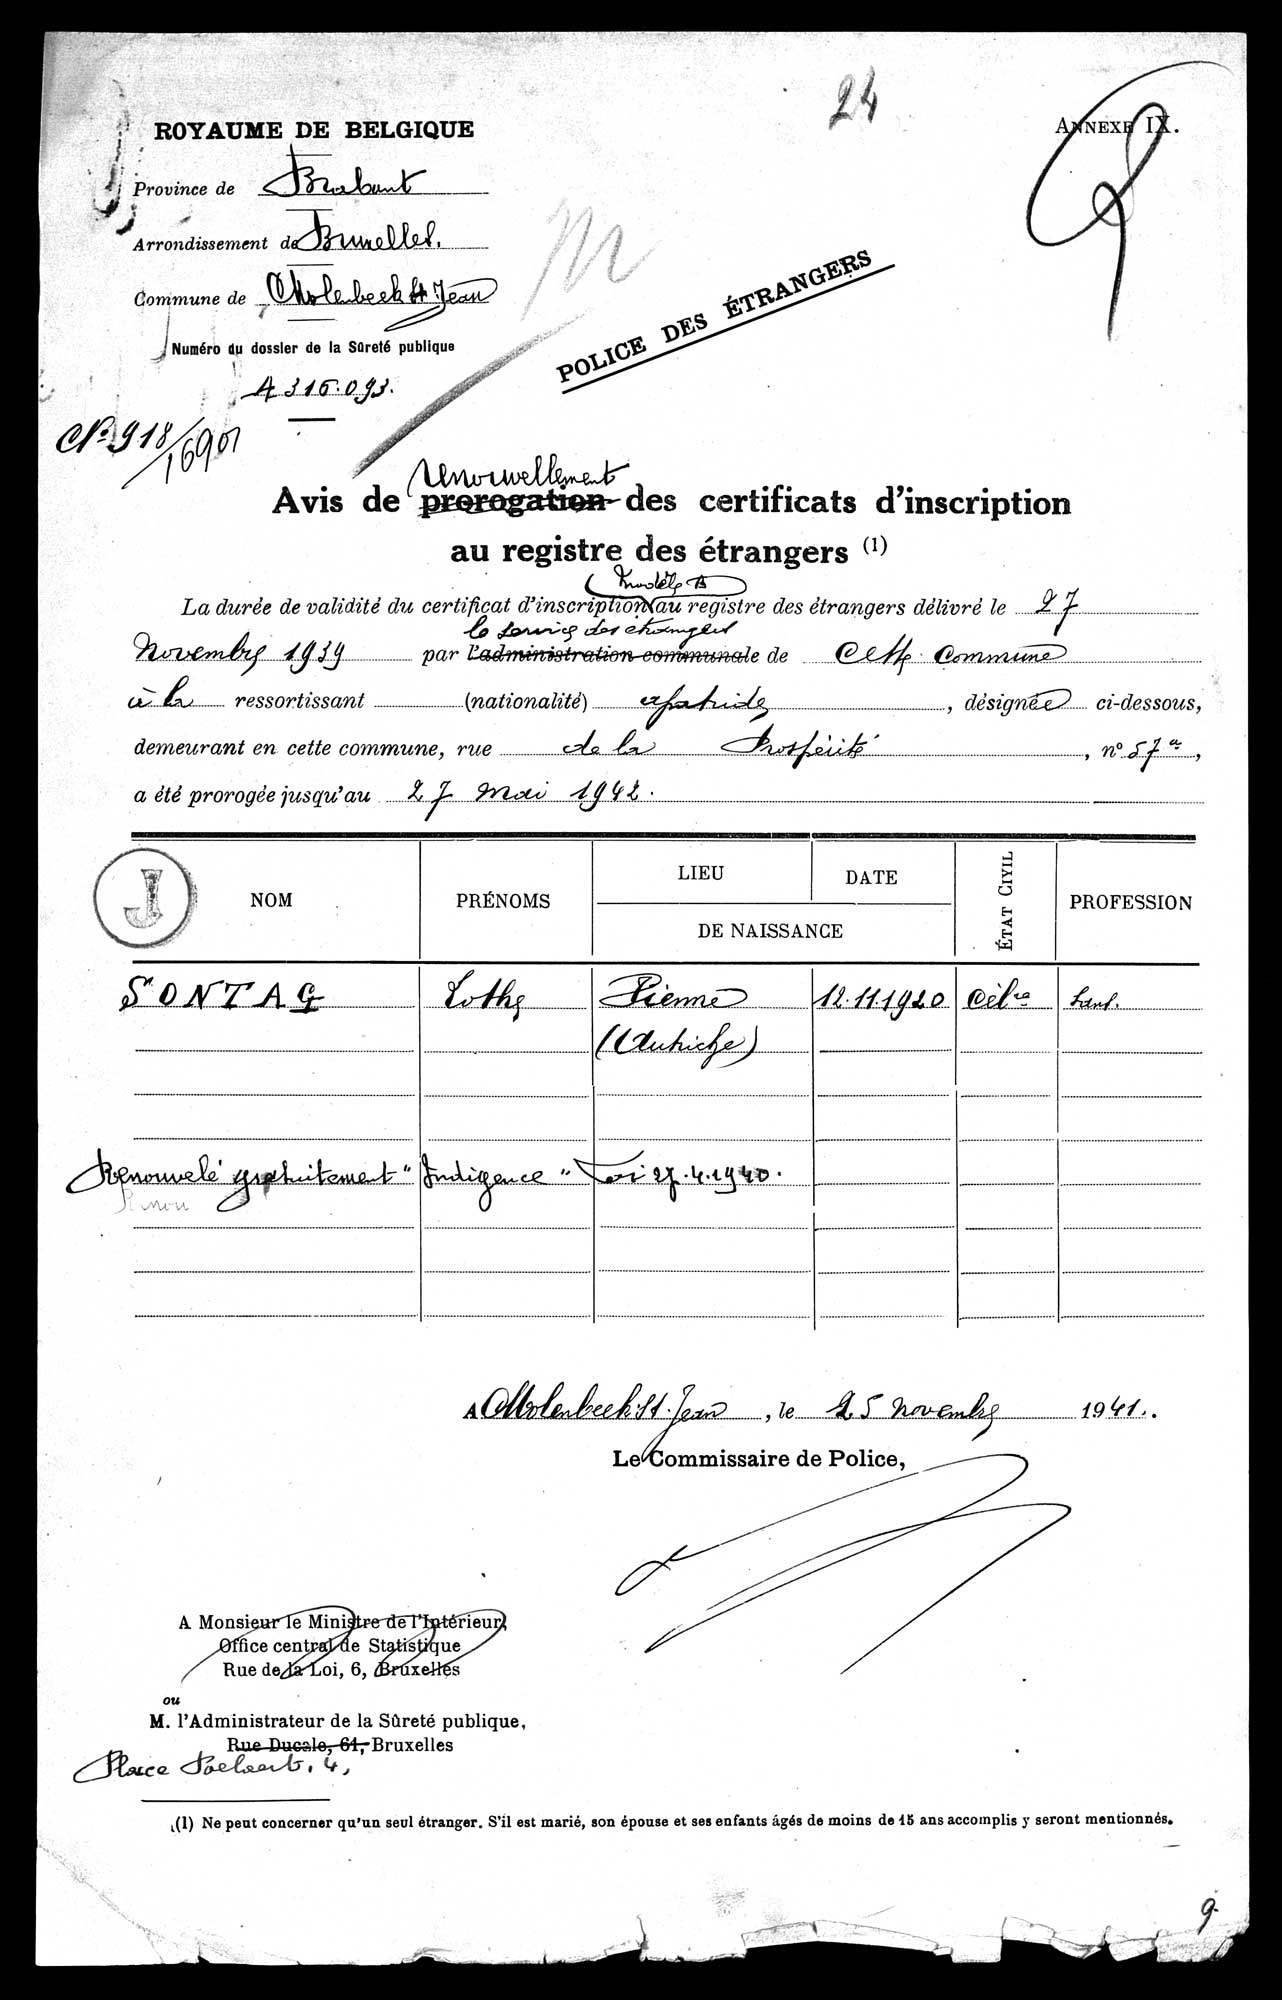 24
ANNEXE IX.
ROYAUME DE BELGIQUE
Province de Brabant
Arrondissement de Bruxelles.
Commune de Molenbeek St Jean
M
POLICE DES ÉTRANGERS
Numéro du dossier de la Sûreté publique
A 316.093.
No 918/
renouvellement
Avis de prorogation des certificats d'inscription
au registre des étrangers (1)
Modèle B
La durée de validité du certificat d'inscription au registre des étrangers délivré le 27
le service des étrangers
Novembre 1939 par l'administration communale de Cette Commune
à la ressortissant (nationalité) apatride, désignée ci-dessous,
demeurant en cette commune, rue de la Prospérité, n° 57
a été prorogée jusqu'au 27 Mai 1942.
J
NOM PRÉNOMS LIEU DATE ÉTAT CIVIL PROFESSION
DE NAISSANCE
SONTAG Lothe Vienne 12.11.1920 Célre Sans.
(Autriche)
Renouvelé gratuitement "Indigence" Loi 27.4.1940.
Renou
A Molenbeek-St. Jean, le 25 Novembre 1941.
Le Commissaire de Police,
A Monsieur le Ministre de l'Intérieur,
Office central de Statistique
Rue de la Loi, 6, Bruxelles
ou
M. l'Administrateur de la Sûreté publique,
Rue Ducale, 61, Bruxelles
Place Poelaert, 4,
(1) Ne peut concerner qu'un seul étranger. S'il est marié, son épouse et ses enfants âgés de moins de 15 ans accomplis y seront mentionnés.
9.